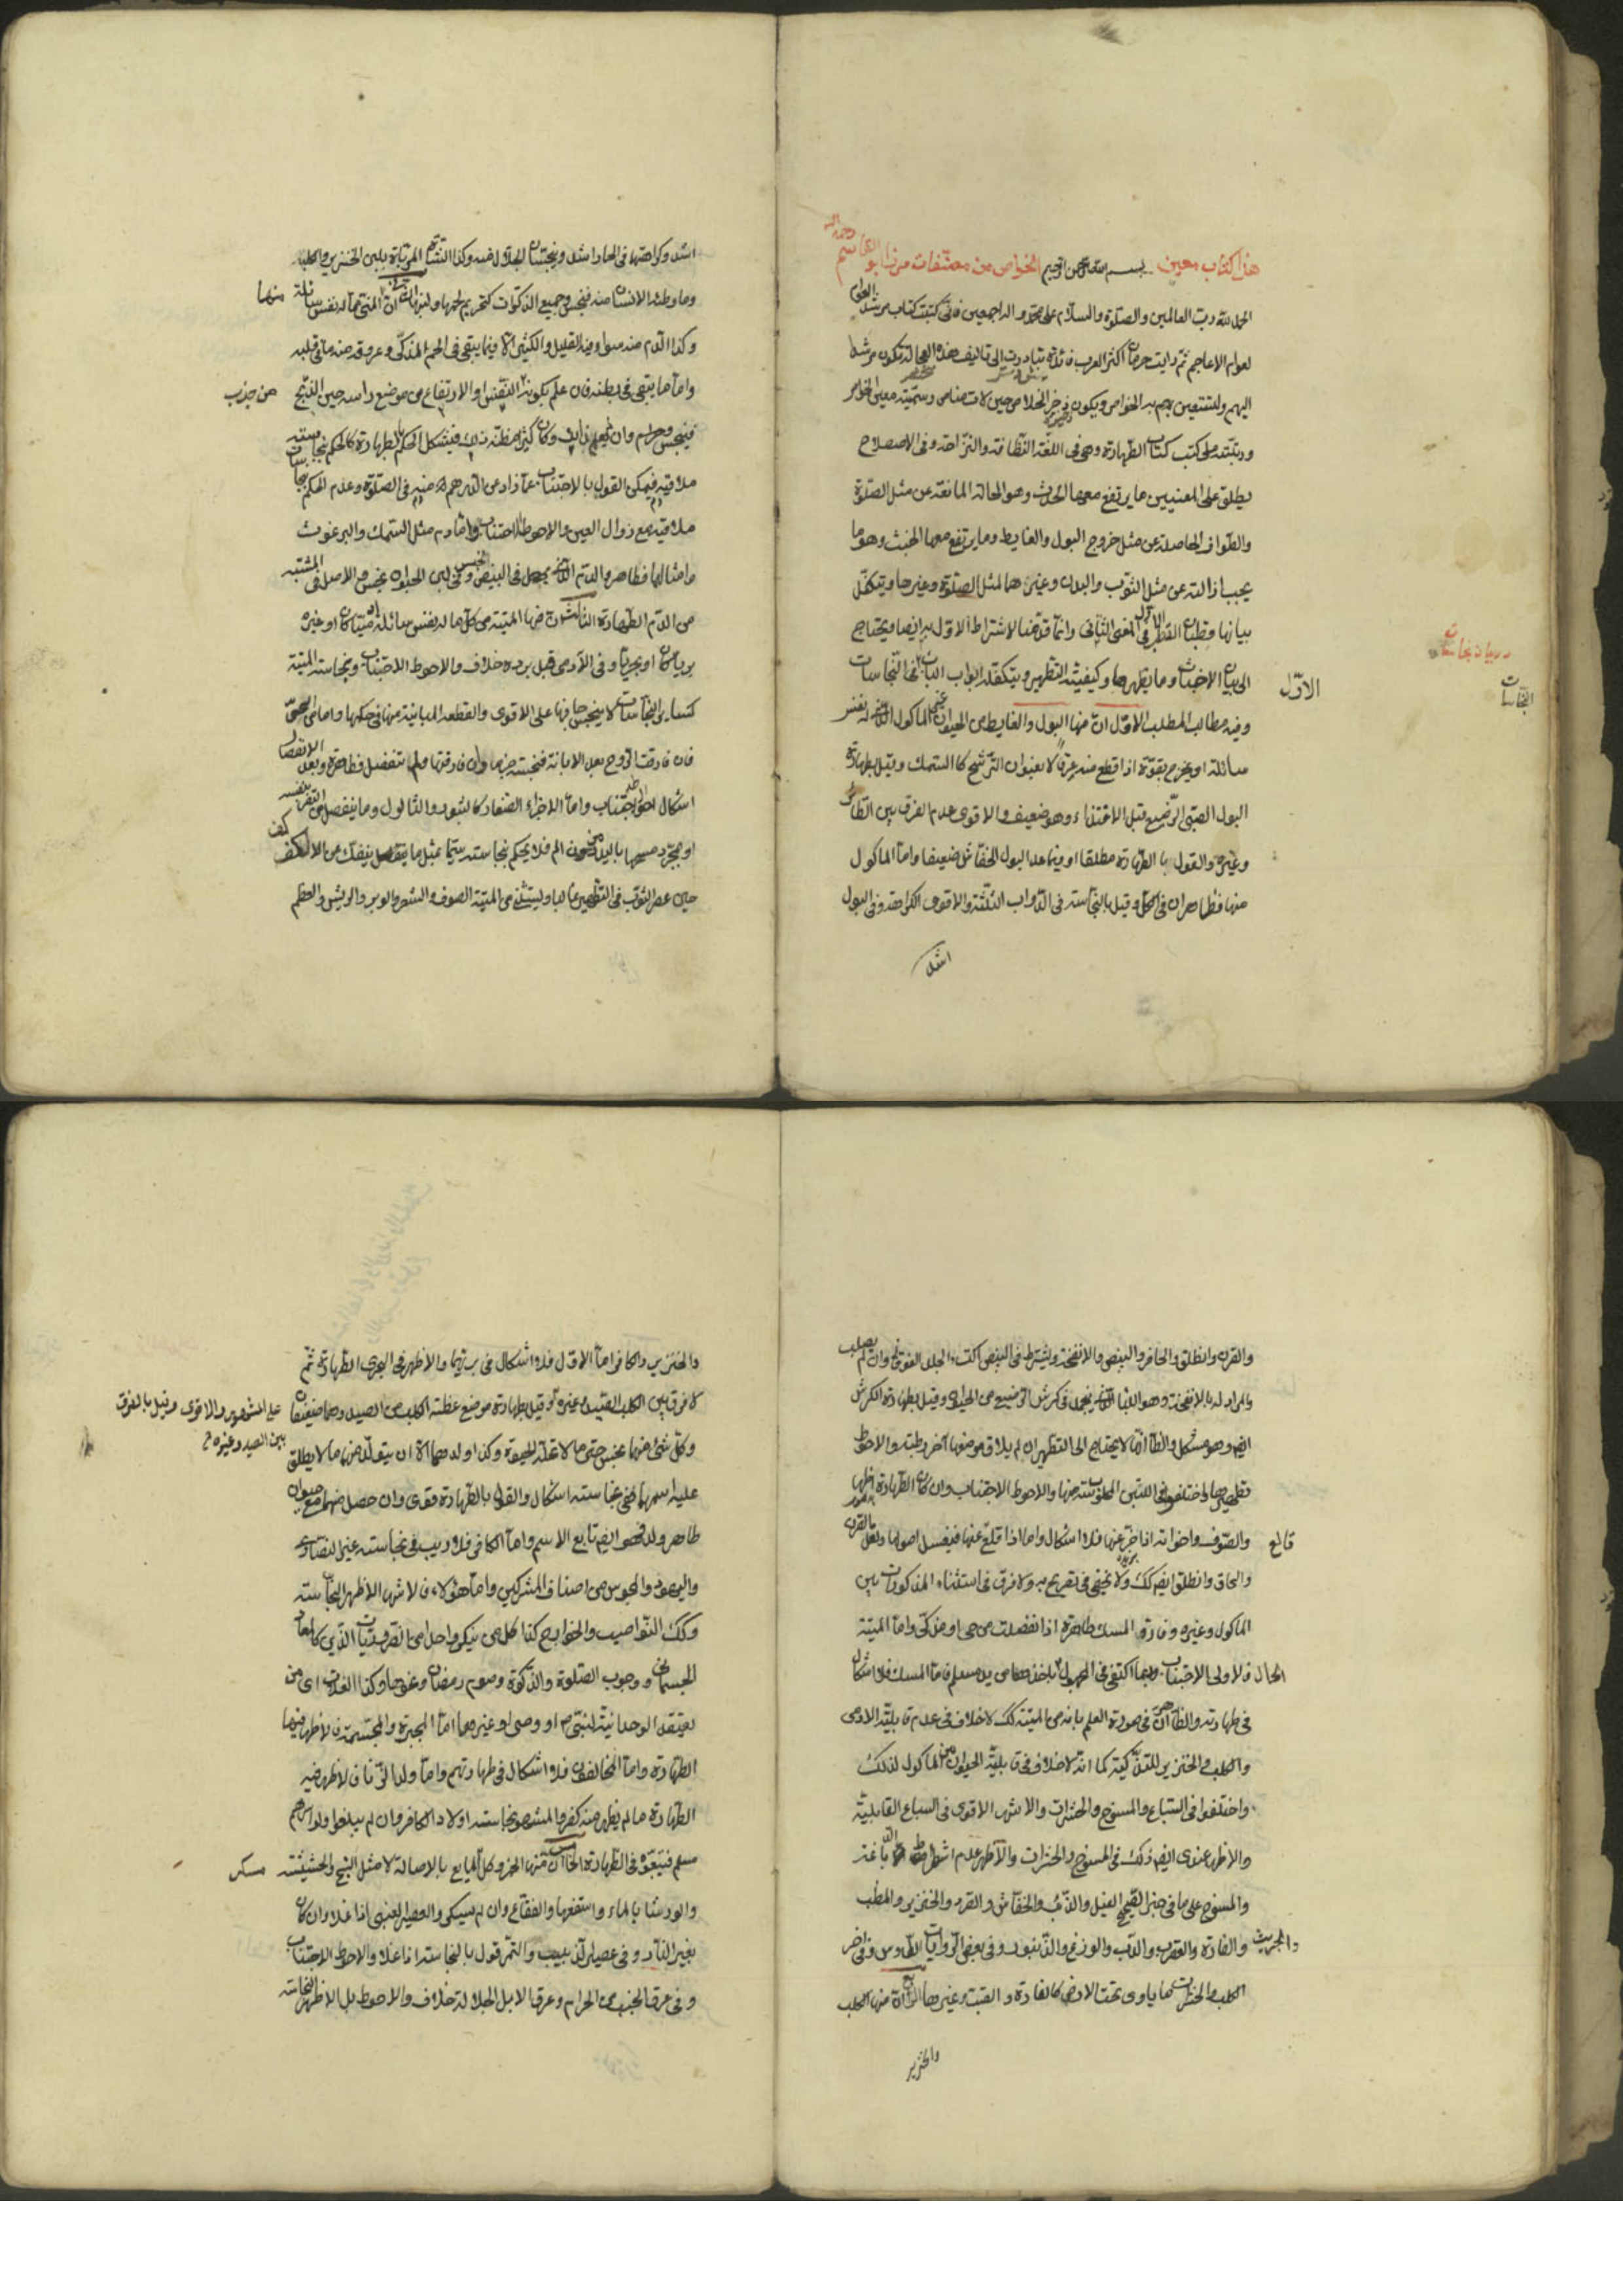 هذا كتاب معين بسم الله الرحمن الرحيم الخواص من مصنفات ميرزا ابو القاسم رحمه الله
الحمد لله رب العالمين والصلوة والسلام على محمد واله اجمعين فانى كتبت كتاب مرشد العوام
لعوام الاعاجم ثم رايت حرمان اكثر العرب فائدته تبادرت الى تاليف هذه العجالة لتكون مرشدا
اليهم ولينتفعن بهم به الخواص ويكون ذخر الخلاص حين لات مناص وسميته معين الخواص
ورتبته على كتب كتاب الطهارة وهى فى اللغة النظافة والنزاهة وفى الاصطلاح
يطلق على المعنيين ما يرتفع معها الحدث وهو الحالة المانعة عن مثل الصلوة
والطواف الحاصلة عن مثل خروج البول والغايط وما يرتفع معها الخبث وهو ما
يجب ازالته عن مثل الثوب والبدن وغيرهما لمثل الصلوة وغيرها ويتكفل
بيانها قطبان القطب الاول فى المعنى الثانى وانما قدمنا لاشتراط الاول به ايضا ويحتاج
الى بيان الاخباث وما يطهرها وكيفية التطهير ويتكفله ابواب الباب الاول فى النجاسات
در بيان نجاسات
النجاسات
وفيه مطالب المطلب الاول ان منها البول والغايط من الحيوان غير الماكول الذى له نفس
سائلة او يخرج بقوة اذا قطع منه عرق لا بعنوان الترشح كالسمك وقيل بطهارة
البول الصبى الرضيع قبل الاغتذاء وهو ضعيف والاقوى عدم الفرق بين الطائر
وغيره والقول بالطهارة مطلقا او فيما عدا البول الخفاش ضعيف واما الماكول
منها فطاهران فى الكل وقيل بالنجاسة فى الدواب الثلثة والاقوى الكراهة وفى البول
اشد
اشد وكراهتها فى الحمار اشد وينجسان الجلال نفسه وكذا الشاة المرتباة بلبن الخنزير والكلبة
وما وطئه الانسان منه فنجس وجميع المذكورات كتحريم لحمها ولبنها الثانى ان المنى مما له نفس سائلة منها
وكذا الدم منه سواء فيه القليل والكثير الا فيما يبقى فى اللحم المذكى وعروقه منه ما فى قلبه
واما ما يبقى فى بطنه فان علم بكونه للتنفس او الارتفاع من موضع راسه حين الذبح من جذب
فنجس وحرام وان لم يعلم ذلك وكان كثيرا مظنة ذلك فيشكل الحكم بالطهارة كالحكم بنجاسته
ملاقيه فيمكن القول بالاجتناب عما زاد عن الدرهم منه فى الصلوة وعدم الحكم بنجاسة
ملاقيه مع زوال العين والاحوط اجتناب واما دم مثل السمك والبرغوث
وامثالهما فطاهر والدم الذى يحصل فى البيض نجس وفى لبن الحلوان نجس والاصل فى المشتبه
من الدم الطهارة الثالث ان منها الميتة من كل ما له نفس سائلة انسان كان او غيره
بريا كان او بحريا وفى الآدمى قبل برده خلاف والاحوط الاجتناب ونجاسة الميتة
كساير النجاسات لا ينجس جافها على الاقوى والقطعة المبانة منها فى حكمها واما من الحى
فان فارقت الروح بعد الابانة فنجسة جزما وان فارقتها ولما تنفصل فطاهرة وبعد الانفصال
اشكال احوطه الاجتناب واما الاجزاء الصغار كالبثور والثالول وما ينفصل من القروح بنفسه
او بمجرد مسحها باليد من دون الم فلا يحكم بنجاسته سيما بمثل ما ينفصل ينفك من الاكف
حين عصر الثوب فى التطهير غالبا ويستثنى من الميتة الصوف والشعر والوبر والريش والعظم
والقرن والظلف والحافر والبيض والانفحة ويشترط فى البيض اكتساء الجلد الفوقانى وان لم يصلب
والمراد له بالانفحة وهو اللبا الذى ينجمد فى كرش الرضيع من الحيوان وقيل بطهارة الكرش
ايضا وهو مشكل والظاهر انما لا يحتاج الى التطهير ان لم يلاق موضعها آخر رطبة والاحوط
تطهيرها واختلفوا فى اللبن المحلوب ميتة منها والاحوط الاجتناب وان كان الطهارة اظهر
والصوف واخواته اذا جز عنها فلا اشكال واما اذا قلع عنها فيغسل اصولها ولعل القرن قالع
والحاق والظلف ايضا كك ولا يخفى فى تفريع به ولا فرق فى استثناء المذكورات بين
الماكول وغيره وفارة المسك طاهرة اذا انفصلت من حى او مذكى واما الميتة
فالاولى الاجتناب وربما اكتفى فى المجهول الحال باخذها من يد مسلم فاما المسك فلا اشكال
فى طهارته والظاهر ان فى صورة العلم بانه من الميتة كك لا خلاف فى عدم قابلية الادمى
والكلب والخنزير للتذكية كما انه لا خلاف فى قابلية الحيوان الماكول لذلك
واختلفوا فى السباع والمسوخ والحشرات والاشهر الاقوى فى السباع القابلية
والاظهر عندى ايضا ذلك فى المسوخ والحشرات والاظهر عدم اشتراط الدباغة
والمسوخ على ما فى خبر الصحيح الفيل والذئب والخفاش والقرد والخنزير والعقرب
والجريث والفارة والعقرب والدب والوزغ والزنبور وفى بعض الروايات الطاوس وفى اخر
الكلب والحشرات مما ياوى تحت الارض كالفارة والضب وغيرها الرابع ان منها الكلب
والخنزير
والخنزير والكافر اما الاول فلا اشكال فى بريهما والاظهر فى البحرى الطهارة ثم
لا فرق بين الكلب الصيد وغيره وقيل بطهارة موضع عظته الكلب من الصيد وهما ضعيفان على المشهور والاقوى وقيل بالفرق
بين الصيد وغيره
وكل شئ منهما نجس حتى ما لا تحله الحيوة وكذا ولدهما الا ان يتولد منهما ما لا يطلق
عليه اسمهما ففى نجاسته اشكال والقول بالطهارة قوى وان حصل منهما مع حيوان
طاهر ولد فهو ايضا تابع الاسم واما الكافر فلا ريب فى نجاسته غير النصارى
واليهود والمجوس من اصناف المشركين واما هؤلاء فالاشهر الاظهر النجاسة
وكك النواصب والخوارج كذا كل من ينكر واحدا من الضروريات الدين كالمعاد
الجسمانى ووجوب الصلوة والزكوة وصوم رمضان ونحوها وكذا الغلاة اى من
يعتقد الوحدانية لنبى او وصى او غيرهما اما المجبرة والمجسمة فالاظهر فيهما
الطهارة واما المخالفون فلا اشكال فى طهارتهم واما ولد الزنا فالاظهر فيه
الطهارة ما لم يظهر منه كفر والمشهور نجاسة اولاد الكافر وان لم يبلغوا ولو اسرهم
مسلم فيتبعه فى الطهارة الخامس ان منها الخمر وكل مايع بالاصالة لا مثل البنج والحشيشة مسكر
والورستا بالماء واستفعها والفقاع وان لم يسكر والعصير العنبى اذا غلا وان كان
بغير النار وفى عصير الزبيب والتمر قول بالنجاسة اذا غلا والاحوط الاجتناب
وفى عرق الجنب من الحرام وعرق الابل الجلالة خلاف والاحوط بل الاظهر النجاسة